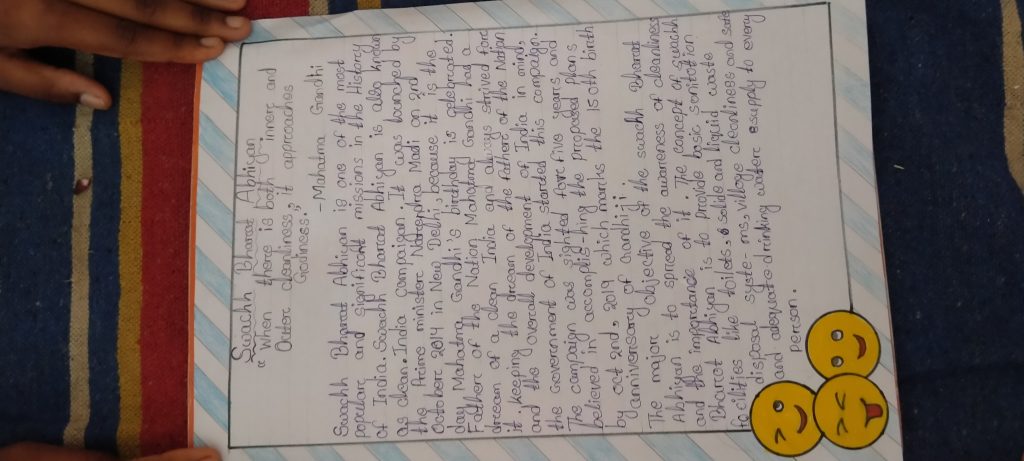 Swachh Bharat Abhigan
"When there is both inner and
Outter cleanliness, it approaches
Godiness."
- Mahatma Gandhi
Swachh Bharat Abhigan is one of the most
popular and significant missions in the History
of India. Swachh Bharat Abhigan is also known
as clean India campaigan. It was launched by
the Prime minister Narendra Modi on 2nd
October 2014 in New Delhi, because it is the
day Mahatma Gandhi's birthday is celebrated.
Father of the Nation Mahatma Gandhi had a
dream of a clean India and always strived for
it keeping the dream of the Father of the Nation
and the overall development of India in mind,
the Government of India started this campaign.
The campaign was sighted for five years and
believed in accomplis-hing the proposed plans
by oct 2nd, 2019 which marks the 150th birth
anniversary of Gandhi-ji.
The major objective of the swachh Bharat
Abhigan is to spread the awareness of cleanliness
and the importance of it. The concept of swachh
Bharat Abhigan is to provide basic sanitation
facilities like toilets, solide and liquid waste
disposal syste-ms, village cleanliness and safe
and adequate drinking water supply to every
person.